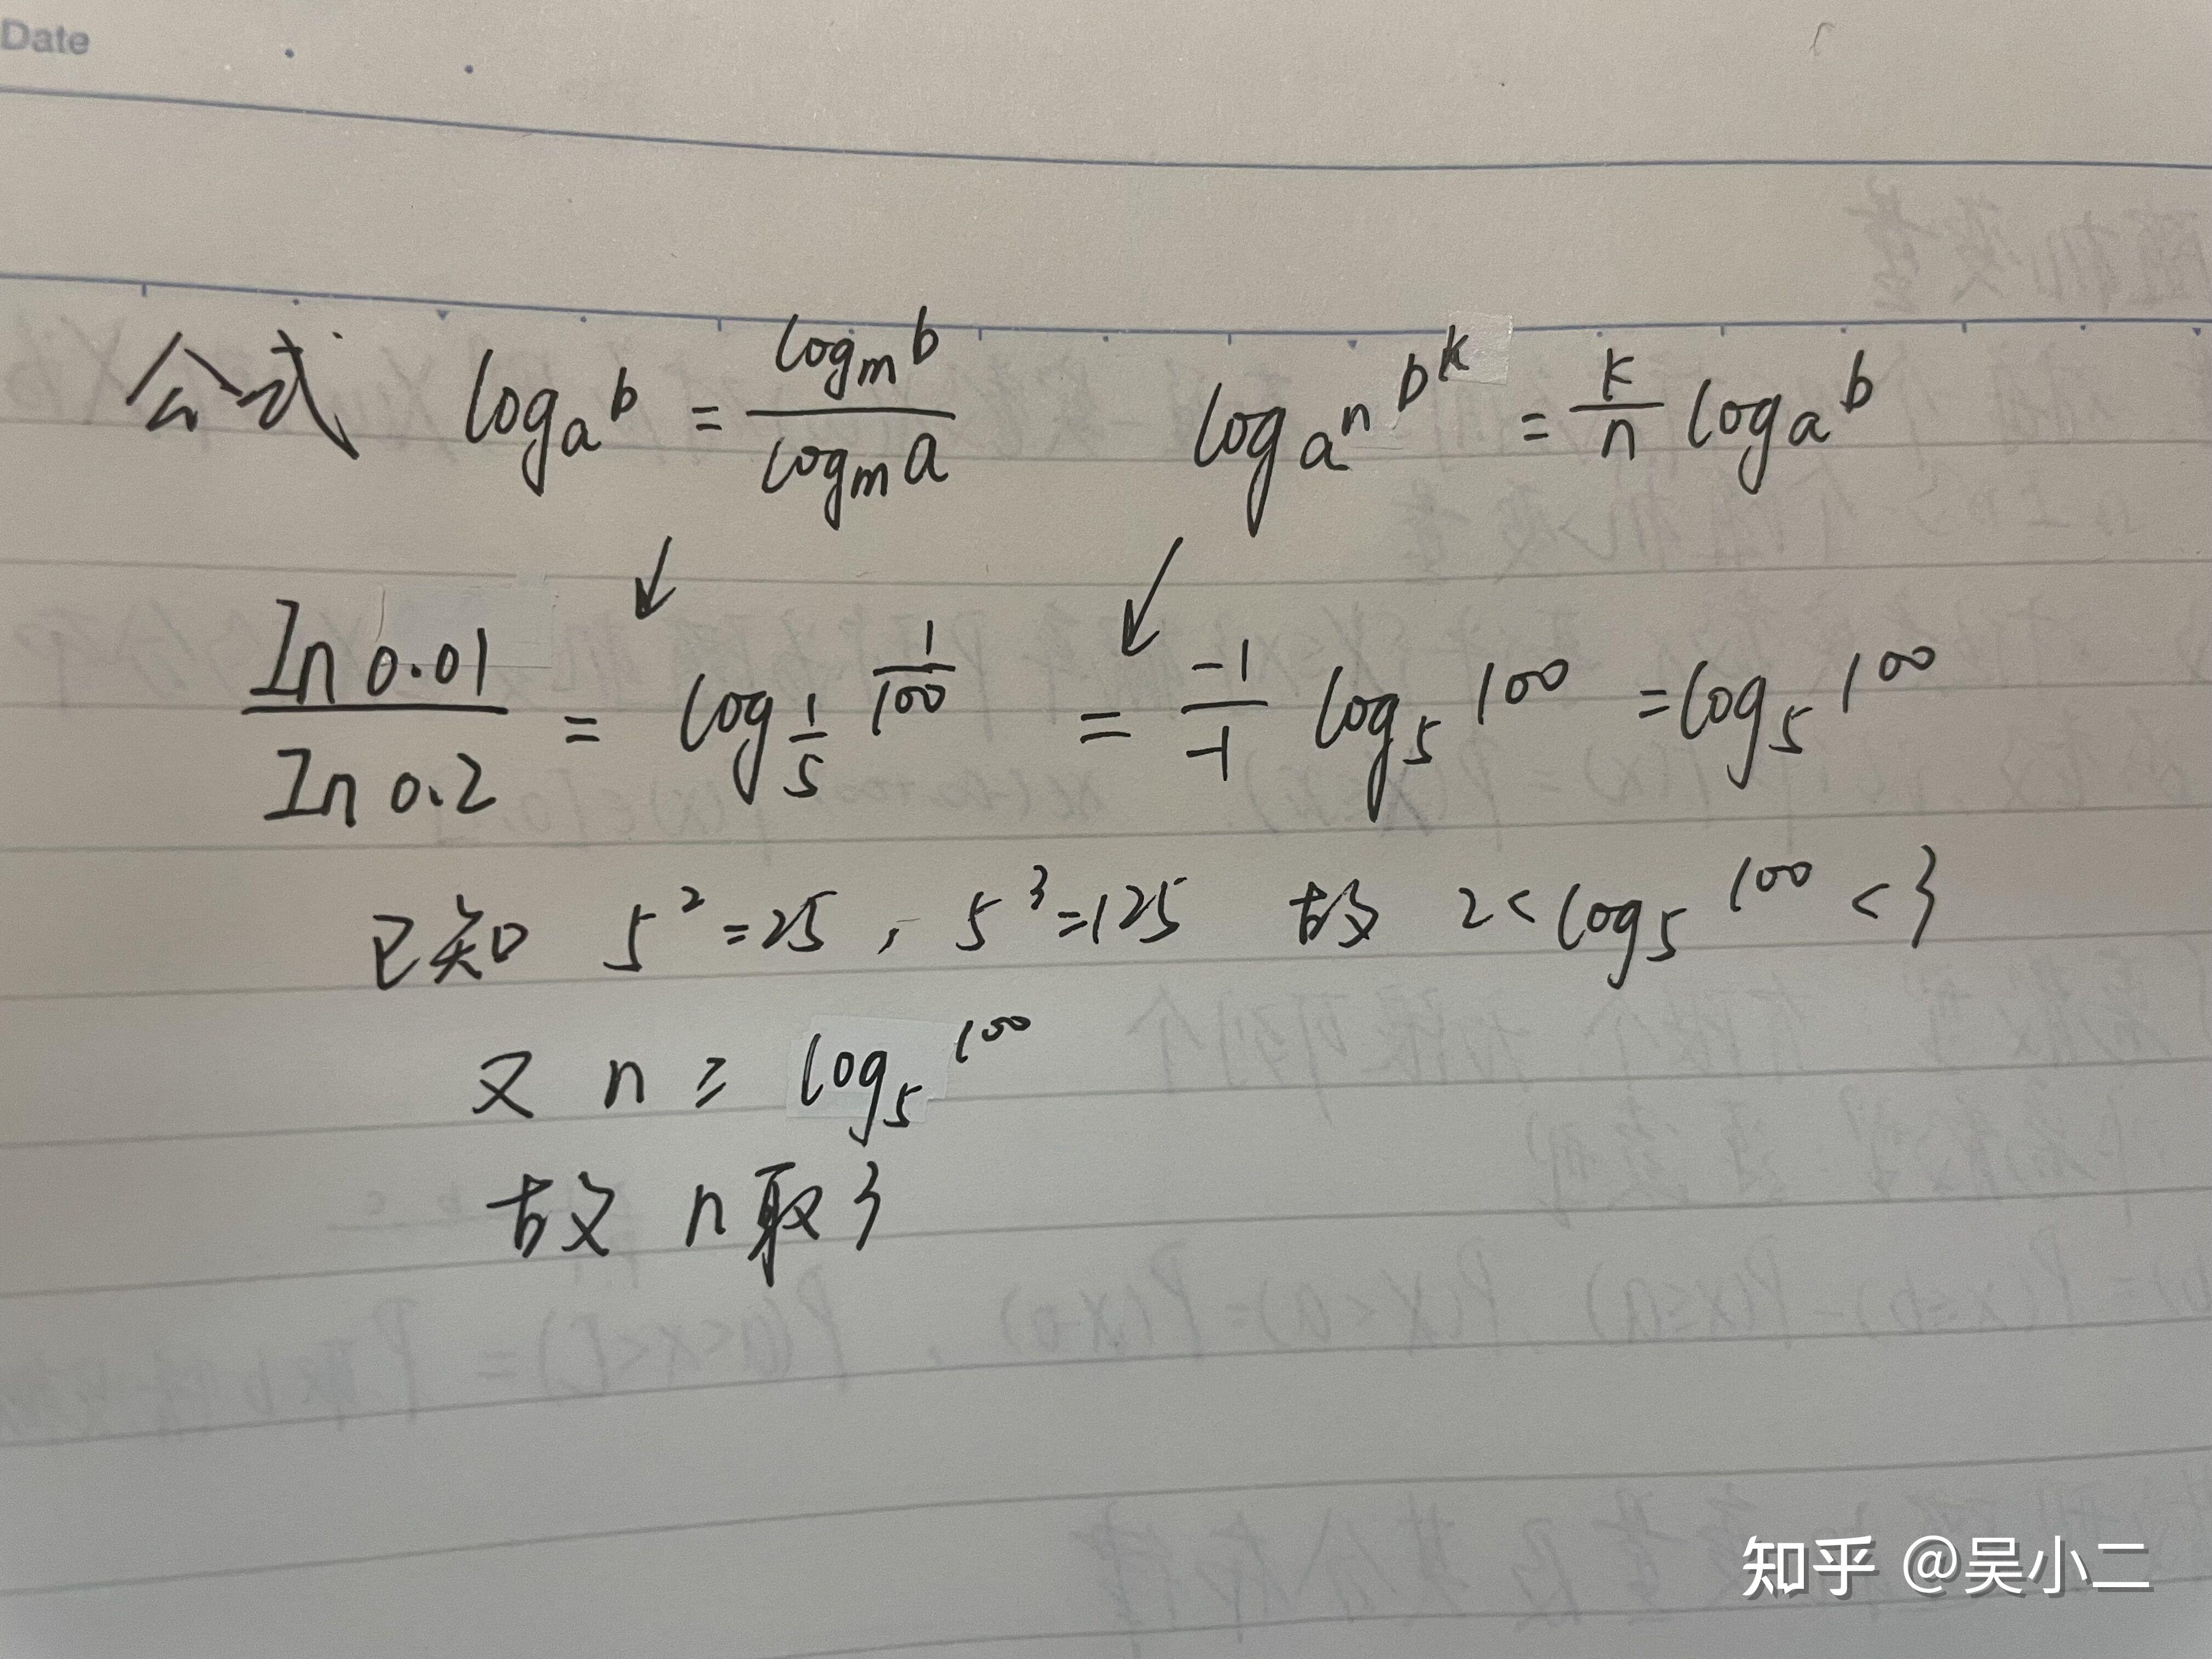 Date
公式 logₐb = logₘb / logₘa    log_{aⁿ} bᵏ = k/n logₐb
↙ ↙
In 0.01 / In 0.2 = log_{1/5} 1/100 = -1/-1 log₅100 = log₅100
已知 5²=25, 5³=125 故 2<log₅100<3
又 n ≥ log₅100
故 n取3
知乎 @吴小二